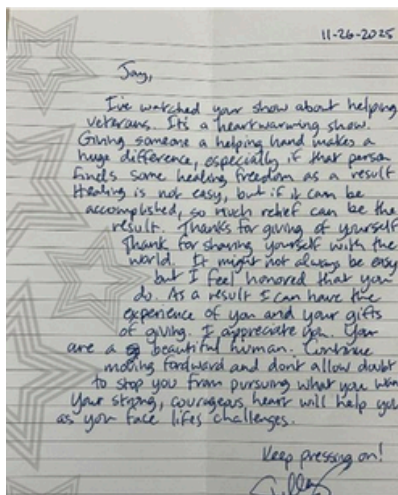 11-26-2025
Jay,
I've watched your show about helping
veterans. Its a heartwarming show.
Giving someone a helping hand makes a
huge difference, especially if that person
finds some healing freedom as a result
Healing is not easy, but if it can be
accomplished, so much relief can be the
result. Thanks for giving of yourself
Thank for sharing yourself with the
world. It might not always be easy
but I feel honored that you
do. As a result I can have the
experience of you and your gifts
of giving. I appreciate you. You
are a beautiful human. Continue
moving forward and dont allow doubt
to stop you from pursuing what you wan
Your strong, courageous heart will help you
as you face lifes challenges.
Keep pressing on!